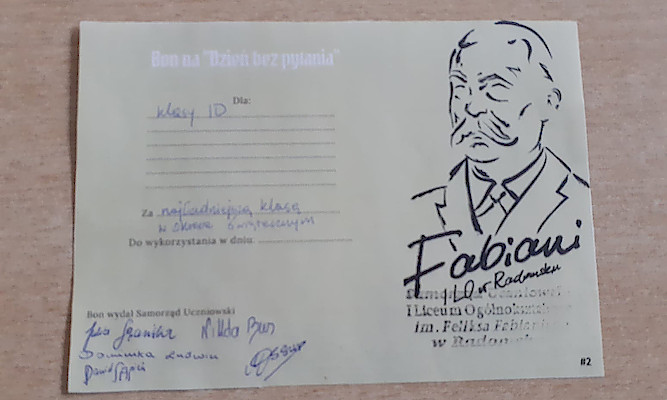 Bon na "Dzień bez pytania"
Dla:
klasy 1D
Za najładniejszą klasę
w okresie świątecznym
Do wykorzystania w dniu:
Bon wydał Samorząd Uczniowski
Dominika
Dawid
Fabiani
I LO w Radomsku
Samorząd Uczniowski
I Liceum Ogólnokształcące
im. Feliksa Fabianiego
w Radomsku
#2